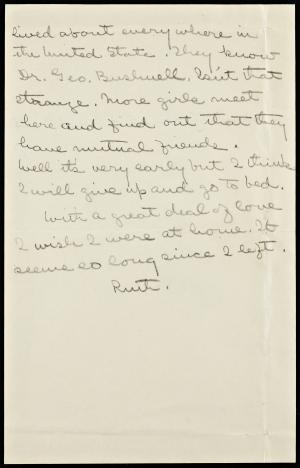 lived about everywhere in
the United State. They know
Dr. Geo. Bushnell. Isn't that
strange. More girls meet
here and find out that they
have mutual friends.
Well its very early but I think
I will give up and go to bed.
With a great deal of love
I wish I were at home. It
seems so long since I left.
Ruth.